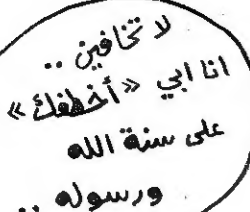 لا تخافين ..
انا ابي «أخطفك»
على سنة الله
ورسوله ..